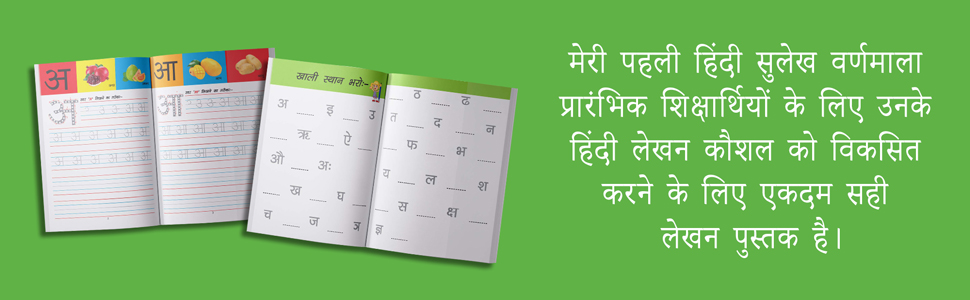 अ
आ
खाली स्थान भरो:-
अ ........ इ ........ उ
........ ऋ ........ ऐ ........
औ ........ अः
........ ख ........ घ ........
च ........ ज ........ ञ
........ ठ ........ ढ ........
त ........ द ........ न
........ फ ........ भ ........
य ........ ल ........ श
........ स ........ क्ष ........
ज्ञ ........
मेरी पहली हिंदी सुलेख वर्णमाला
प्रारंभिक शिक्षार्थियों के लिए उनके
हिंदी लेखन कौशल को विकसित
करने के लिए एकदम सही
लेखन पुस्तक है।